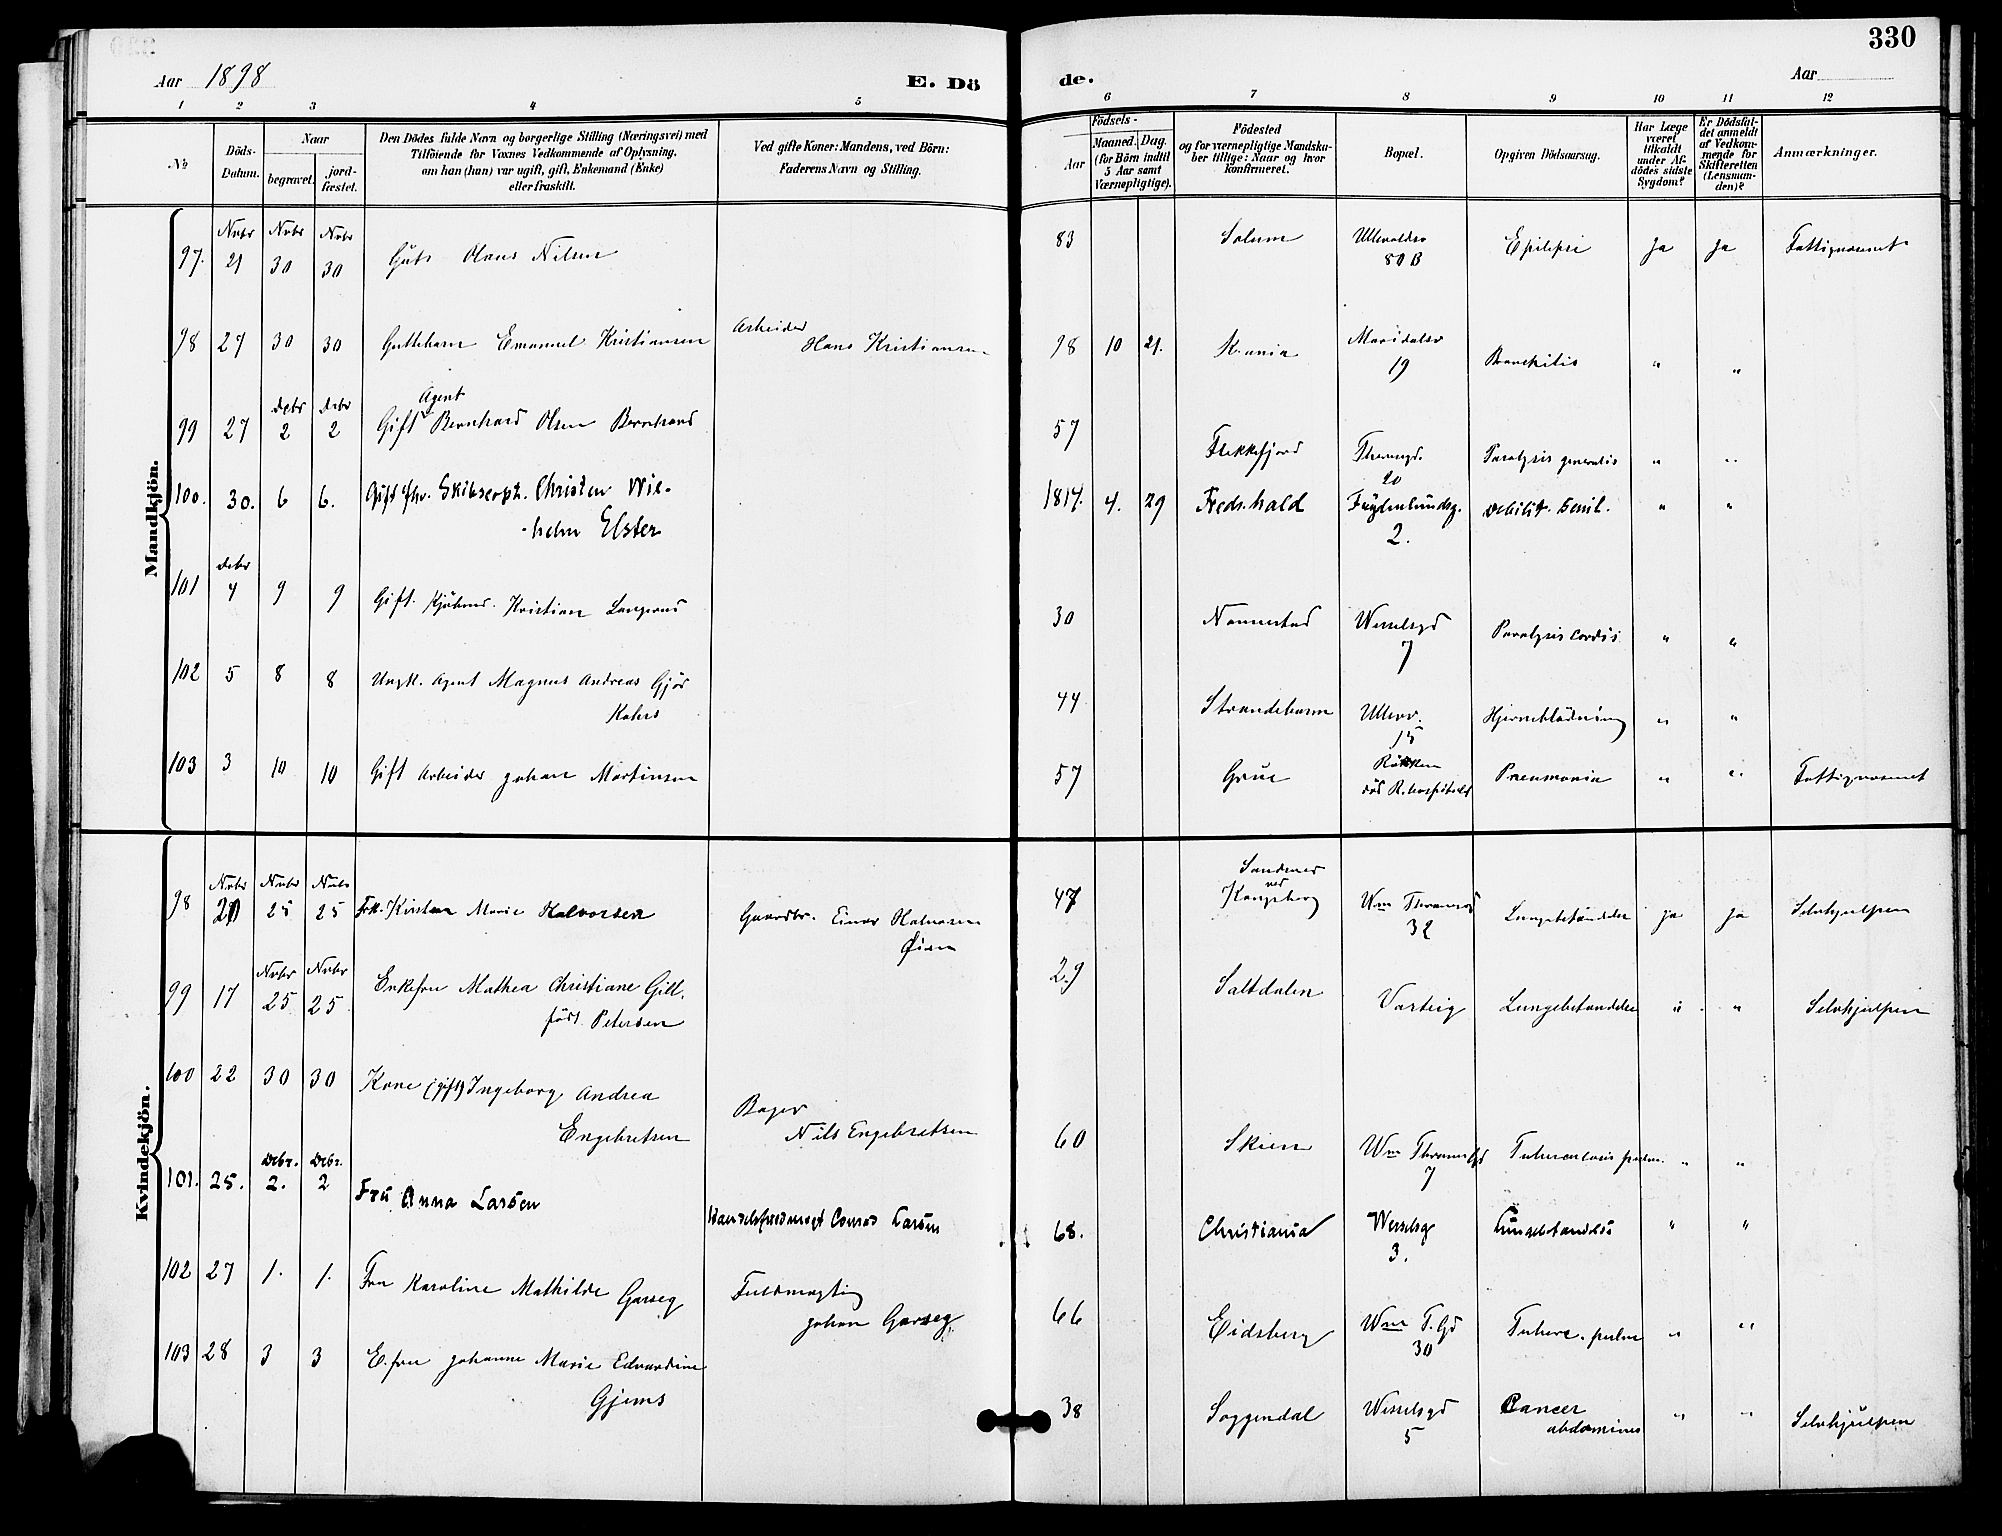 330
Aar 1898
E. Dö
de.
Aar
1 2 3 4 5 6 7 8 9 10 11 12
No
Döds-
Datum.
Naar
begravet.
jord-
fæstet.
Den Dödes fulde Navn og borgerlige Stilling (Næringsvei) med
Tilföiende for Voxnes Vedkommende af Oplysning,
om han (hun) var ugift, gift, Enkemand (Enke)
eller fraskilt.
Ved gifte Koner: Mandens, ved Börn:
Faderens Navn og Stilling.
Födsels-
Aar
Maaned. Dag.
(for Börn indtil
5 Aar samt
Værnepligtige).
Födested
og for værnepligtige Mandsku-
ber tillige: Naar og hvor
konfirmeret.
Bopæl.
Opgiven Dödsaarsag.
Har Læge
været
tilkaldt
under Af-
dödes sidste
Sygdom?
Er Dödsfal-
det anmeldt
af Vedkom-
mende for
Skifteretten
(Lensman-
den)?
Anmærkninger.
Mandkjön.
Novbr Novbr Novbr
97. 21 30 30 Hans Nilsen 83 Solum Ullevoldsv 80 B Epilepsi Ja Ja Fattigvæsenet
98 27 30 30 Guttebarn Emanuel Kristiansen Arbeider
Hans Kristiansen 98 10 21. K.ania Maridalsv
19 Bronchitis " "
Debr Debr Agent
99 27 2 2 Gift Bernhard Olsen Bernhard 57 Flekkefjord Paralysis generalis " "
20
100. 30. 6 6. Gift fhv. Skibscapt. Christen Wil-
helm Elster 1817. 4. 29 Fredshald Fuglenlundsg.
2. Debilit. senil. " "
Debr
101 4 9 9 Gift. Kjöbmd. Kristian Langerud 30 Nannestad Wesselsgd
7 Paralysis cordis " "
102 5 8 8 Ungk. Agent Magnus Andreas Gjör
Kahrs 44 Strandebarm Ullevv.
15 Hjerneblödning " "
103 3 10 10 Gift Arbeider Johan Martinsen 57 Grue Röken
död R.hospitalet Pneumonia " " Fattigvæsenet
Kvindekjön.
Novbr Novbr Novbr
98 20 25 25 Frk. Kirsten Marie Halvorsen Gaardbr. Einar Halvorsen
Öien 47 Sandsvær
ved
Kongsberg Wm Thranesgd
32 Lungebetændelse ja ja Selvhjælpen
Novbr Novbr
99 17 25 25 Enkefru Mathea Christiane Gill.
født Petersen 29 Saltdalen Varteig Lungebetændelse " " Selvhjælpen
100 22 30 30 Kone (gift) Ingeborg Andrea
Engebretsen Bager
Nils Engebretsen 60 Skien Wm Thranesgd
7 Tuberculosis pulm. " "
Debr. Debr.
101. 25. 2. 2 Fru Anna Larsen Handelsfuldmægt Conrad Larsen 68. Christiania Wesselsg
3. Lungebetændelse " "
102 27 1. 1. Fru Karoline Mathilde
Garseg Fuldmægtig
Johan Garseg 66 Eidsberg Wm T. Gd
30 Tuberc. pulm " "
103 28 3 3 E.fru Johanne Marie Edvardine
Gjems 38 Soggendal Wesselsgd
5 Cancer
abdominis " " Selvhjælpen